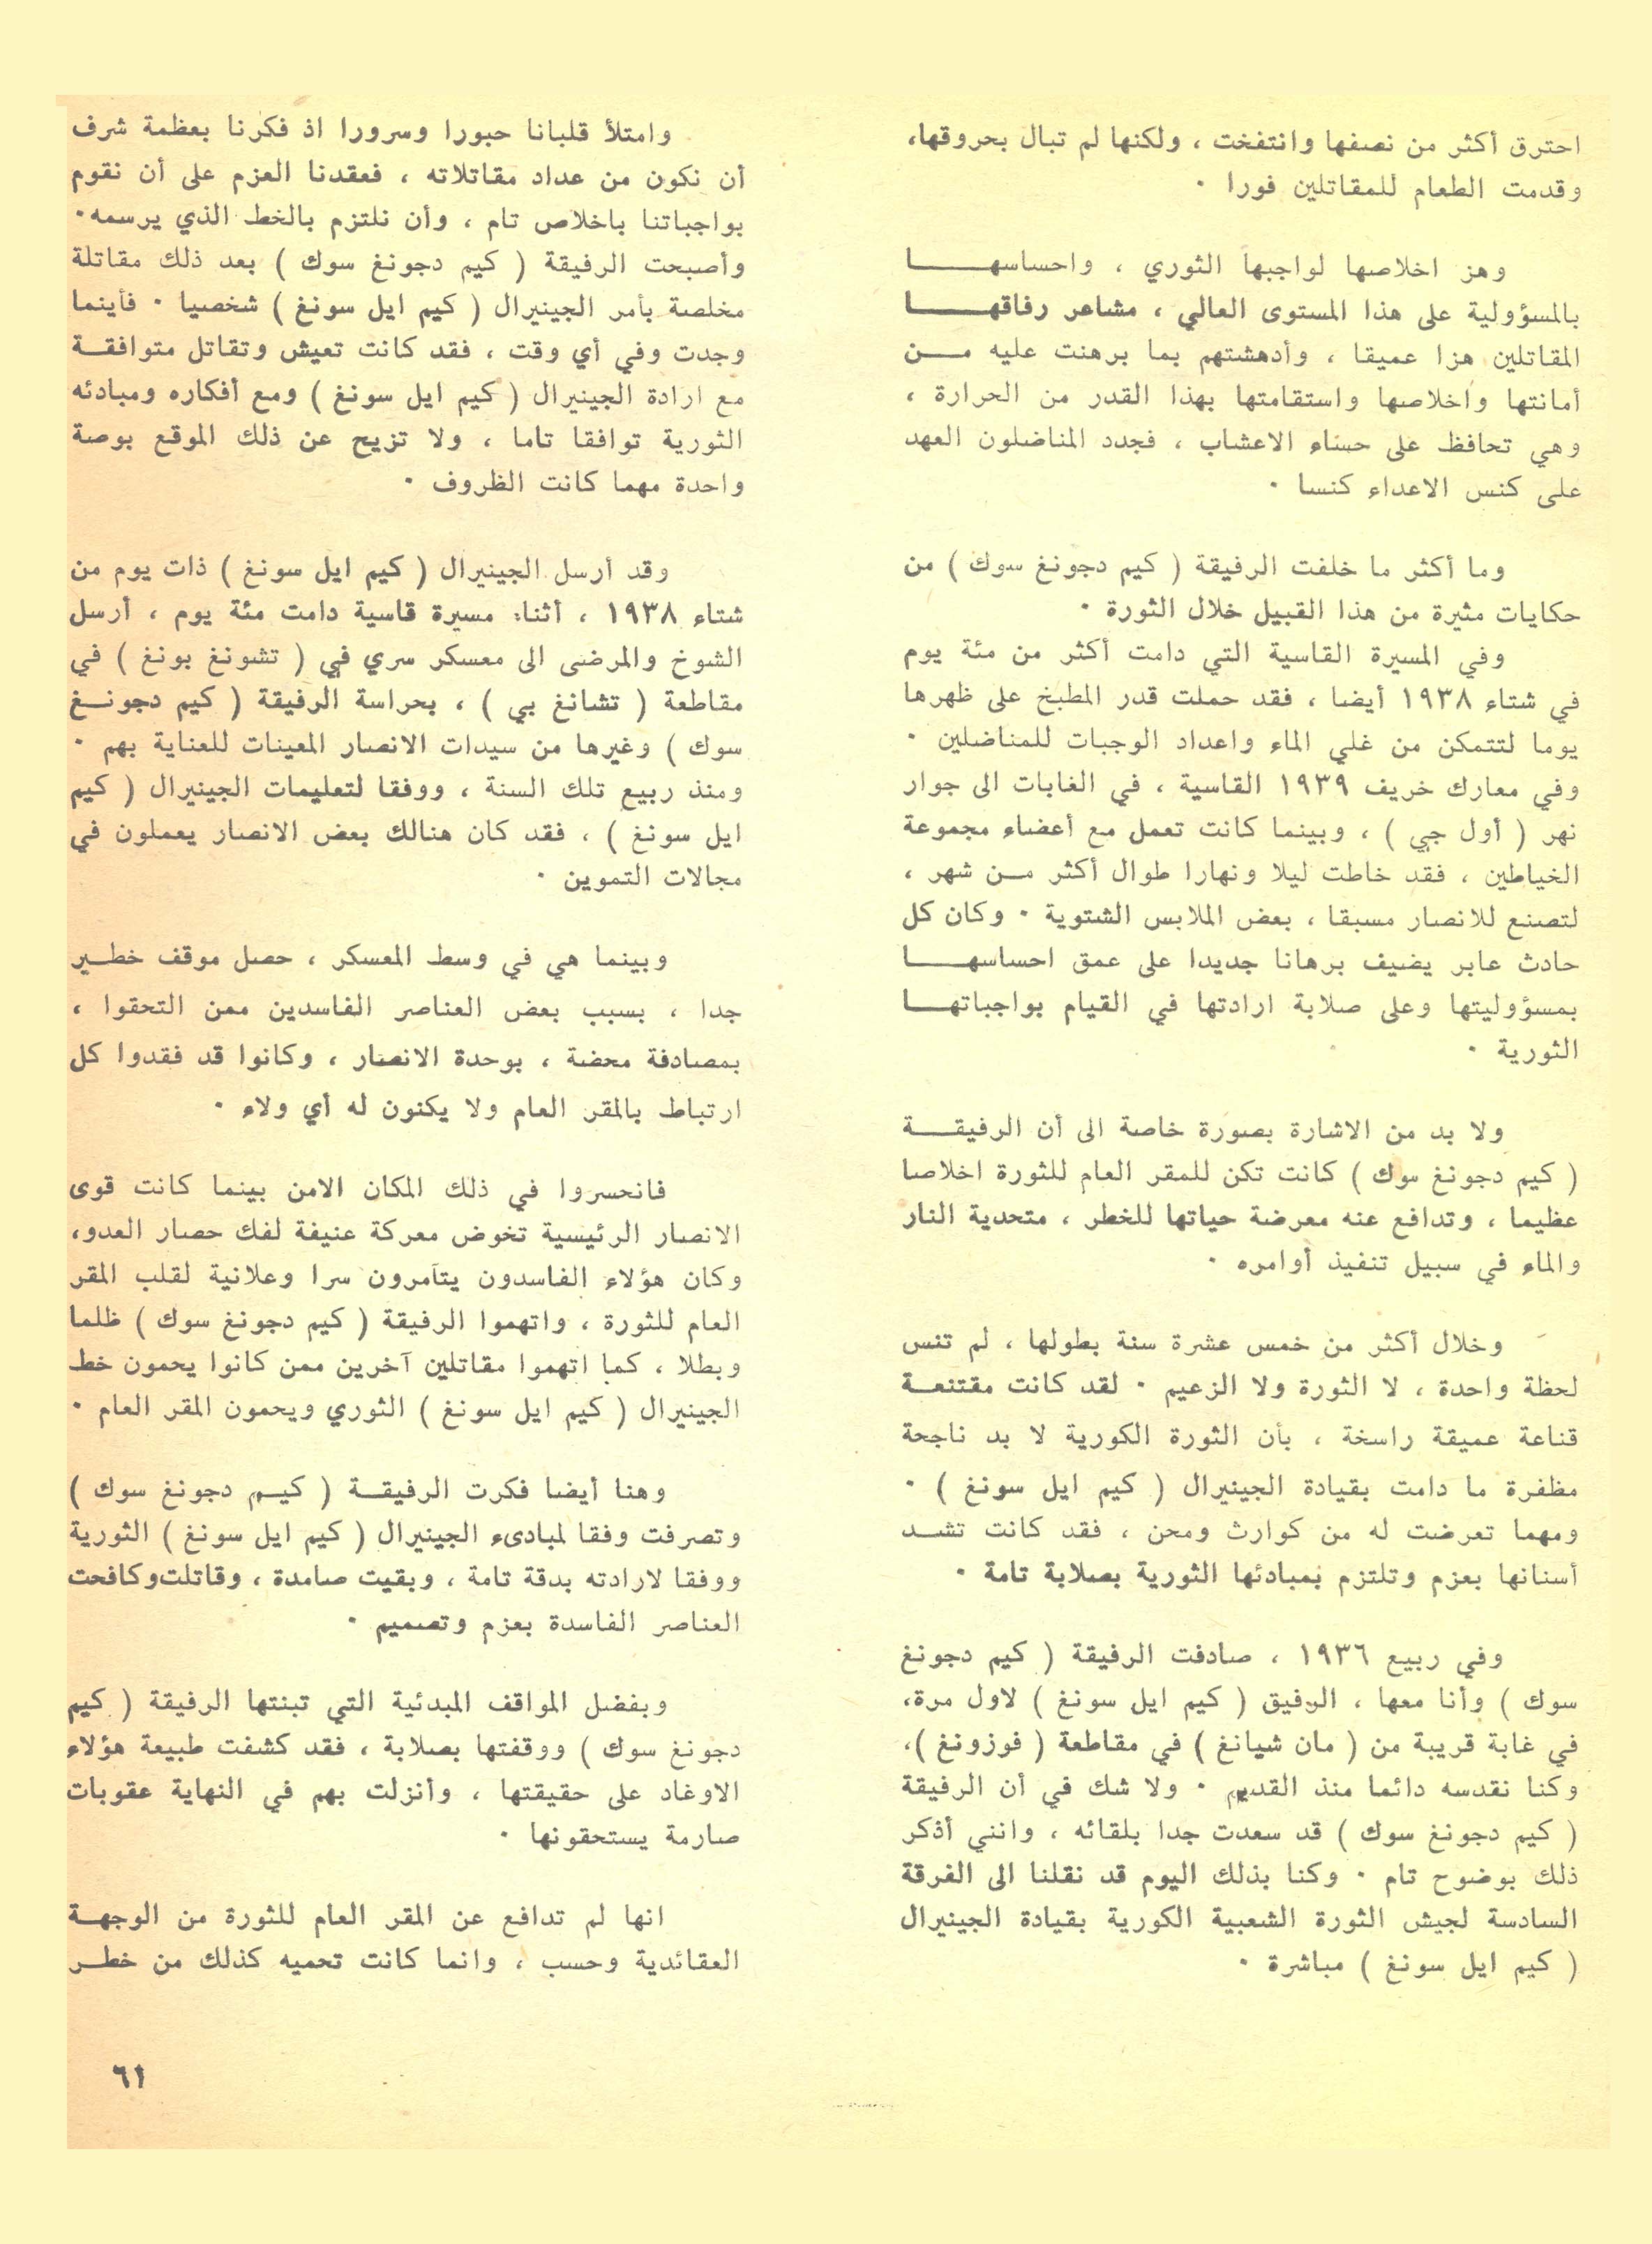 احترق أكثر من نصفها وانتفخت ، ولكنها لم تبال بحروقها،
وقدمت الطعام للمقاتلين فورا ٠
وهز اخلاصها لواجبها الثوري ، واحساسها
بالمسؤولية على هذا المستوى العالي ، مشاعر رفاقها
المقاتلين هزا عميقا ، وأدهشتهم بما برهنت عليه من
أمانتها واخلاصها واستقامتها بهذا القدر من الحرارة ،
وهي تحافظ على حساء الاعشاب ، فجدد المناضلون العهد
على كنس الاعداء كنسا ٠
وما أكثر ما خلفت الرفيقة ( كيم دجونغ سوك ) من
حكايات مثيرة من هذا القبيل خلال الثورة ٠
وفي المسيرة القاسية التي دامت أكثر من مئة يوم
في شتاء ١٩٣٨ أيضا ، فقد حملت قدر المطبخ على ظهرها
يوما لتتمكن من غلي الماء واعداد الوجبات للمناضلين ٠
وفي معارك خريف ١٩٣٩ القاسية ، في الغابات الى جوار
نهر ( أول جي ) ، وبينما كانت تعمل مع أعضاء مجموعة
الخياطين ، فقد خاطت ليلا ونهارا طوال أكثر من شهر ،
لتصنع للانصار مسبقا ، بعض الملابس الشتوية ٠ وكان كل
حادث عابر يضيف برهانا جديدا على عمق احساسها
بمسؤوليتها وعلى صلابة ارادتها في القيام بواجباتها
الثورية ٠
ولا بد من الاشارة بصورة خاصة الى أن الرفيقة
( كيم دجونغ سوك ) كانت تكن للمقر العام للثورة اخلاصا
عظيما ، وتدافع عنه معرضة حياتها للخطر ، متحدية النار
والماء في سبيل تنفيذ أوامره ٠
وخلال أكثر من خمس عشرة سنة بطولها ، لم تنس
لحظة واحدة ، لا الثورة ولا الزعيم ٠ لقد كانت مقتنعة
قناعة عميقة راسخة ، بأن الثورة الكورية لا بد ناجحة
مظفرة ما دامت بقيادة الجينيرال ( كيم ايل سونغ ) ٠
ومهما تعرضت له من كوارث ومحن ، فقد كانت تشد
أسنانها بعزم وتلتزم بمبادئها الثورية بصلابة تامة ٠
وفي ربيع ١٩٣٦ ، صادفت الرفيقة ( كيم دجونغ
سوك ) وأنا معها ، الرفيق ( كيم ايل سونغ ) لاول مرة،
في غابة قريبة من ( مان شيانغ ) في مقاطعة ( فوزونغ )،
وكنا نقدسه دائما منذ القديم ٠ ولا شك في أن الرفيقة
( كيم دجونغ سوك ) قد سعدت جدا بلقائه ، وانني أذكر
ذلك بوضوح تام ٠ وكنا بذلك اليوم قد نقلنا الى الفرقة
السادسة لجيش الثورة الشعبية الكورية بقيادة الجينيرال
( كيم ايل سونغ ) مباشرة ٠
وامتلأ قلبانا حبورا وسرورا اذ فكرنا بعظمة شرف
أن نكون من عداد مقاتلاته ، فعقدنا العزم على أن نقوم
بواجباتنا باخلاص تام ، وأن نلتزم بالخط الذي يرسمه٠
وأصبحت الرفيقة ( كيم دجونغ سوك ) بعد ذلك مقاتلة
مخلصة بأمر الجينيرال ( كيم ايل سونغ ) شخصيا ٠ فأينما
وجدت وفي أي وقت ، فقد كانت تعيش وتقاتل متوافقة
مع ارادة الجينيرال ( كيم ايل سونغ ) ومع أفكاره ومبادئه
الثورية توافقا تاما ، ولا تزيح عن ذلك الموقع بوصة
واحدة مهما كانت الظروف ٠
وقد أرسل الجينيرال ( كيم ايل سونغ ) ذات يوم من
شتاء ١٩٣٨ ، أثناء مسيرة قاسية دامت مئة يوم ، أرسل
الشوخ والمرضى الى معسكر سري في ( تشونغ بونغ ) في
مقاطعة ( تشانغ بي ) ، بحراسة الرفيقة ( كيم دجونغ
سوك ) وغيرها من سيدات الانصار المعينات للعناية بهم ٠
ومنذ ربيع تلك السنة ، ووفقا لتعليمات الجينيرال ( كيم
ايل سونغ ) ، فقد كان هنالك بعض الانصار يعملون في
مجالات التموين ٠
وبينما هي في وسط المعسكر ، حصل موقف خطير
جدا ، بسبب بعض العناصر الفاسدين ممن التحقوا ،
بمصادفة محضة ، بوحدة الانصار ، وكانوا قد فقدوا كل
ارتباط بالمقر العام ولا يكنون له أي ولاء ٠
فانحسروا في ذلك المكان الامن بينما كانت قوى
الانصار الرئيسية تخوض معركة عنيفة لفك حصار العدو،
وكان هؤلاء الفاسدون يتآمرون سرا وعلانية لقلب المقر
العام للثورة ، واتهموا الرفيقة ( كيم دجونغ سوك ) ظلما
وبطلا ، كما اتهموا مقاتلين آخرين ممن كانوا يحمون خط
الجينيرال ( كيم ايل سونغ ) الثوري ويحمون المقر العام ٠
وهنا أيضا فكرت الرفيقة ( كيم دجونغ سوك )
وتصرفت وفقا لمبادىء الجينيرال ( كيم ايل سونغ ) الثورية
ووفقا لارادته بدقة تامة ، وبقيت صامدة ، وقاتلت وكافحت
العناصر الفاسدة بعزم وتصميم ٠
وبفضل المواقف المبدئية التي تبنتها الرفيقة ( كيم
دجونغ سوك ) ووقفتها بصلابة ، فقد كشفت طبيعة هؤلاء
الاوغاد على حقيقتها ، وأنزلت بهم في النهاية عقوبات
صارمة يستحقونها ٠
انها لم تدافع عن المقر العام للثورة من الوجهة
العقائدية وحسب ، وانما كانت تحميه كذلك من خطر
٦١